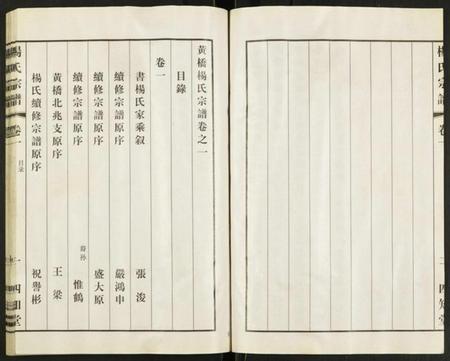 黃橋楊氏宗譜卷之一
目錄
卷一
書楊氏家乘叙 張浚
續修宗譜原序 嚴鴻申
續修宗譜原序 盛大原
續修宗譜原序 裔孫 惟鶴
黃橋北兆支原序 王梁
楊氏續修宗譜原序 祝譽彬
楊氏宗譜 卷一 目錄 一 四知堂
楊氏宗譜 卷一 二 四知堂